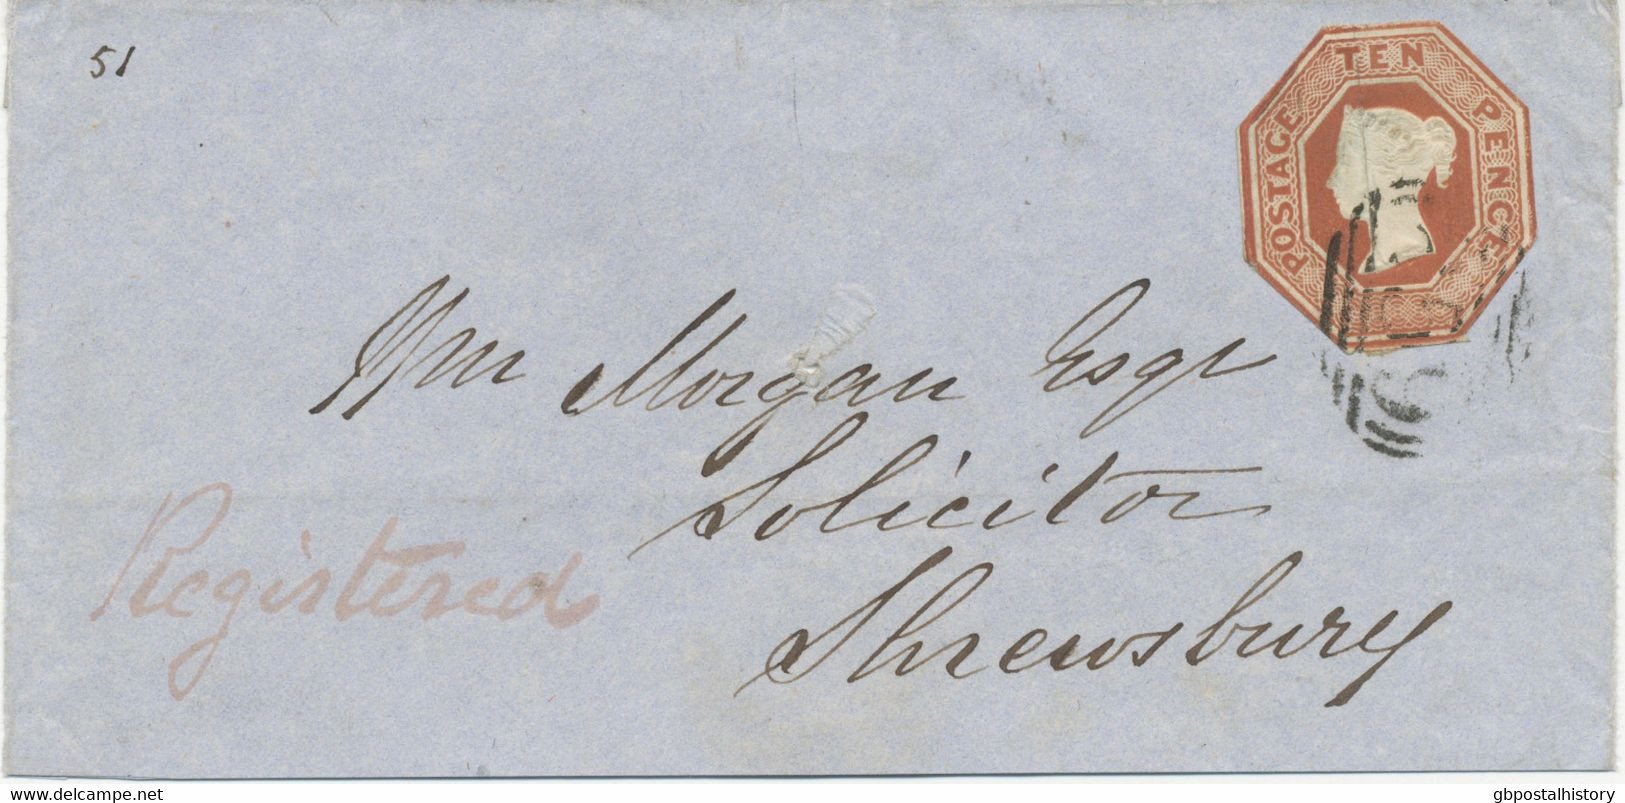 51
POSTAGE TEN PENCE
Wm Morgan Esqr
Solicitor
Shrewsbury
Registered
www.delcampe.net
gbpostalhistory